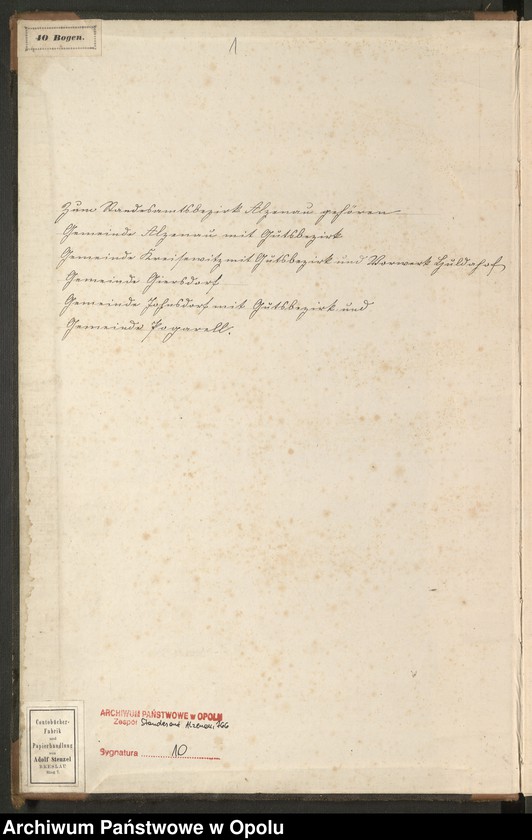 40 Bogen.
1
Zum Standesamtsbezirk Alzenau gehören
Gemeinde Alzenau mit Gutsbezirk
Gemeinde Kreisewitz mit Gutsbezirk und Vorwerk Huldahof
Gemeinde Giersdorf
Gemeinde Johnsdorf mit Gutsbezirk und
Gemeinde Pogarell.
Contobücher-
Fabrik
und
Papierhandlung
von
Adolf Stenzel
BRESLAU
ARCHIWUM PAŃSTWOWE w OPOLU
Zespół Standesamt Alzenau, 166
Sygnatura 10
Archiwum Państwowe w Opolu